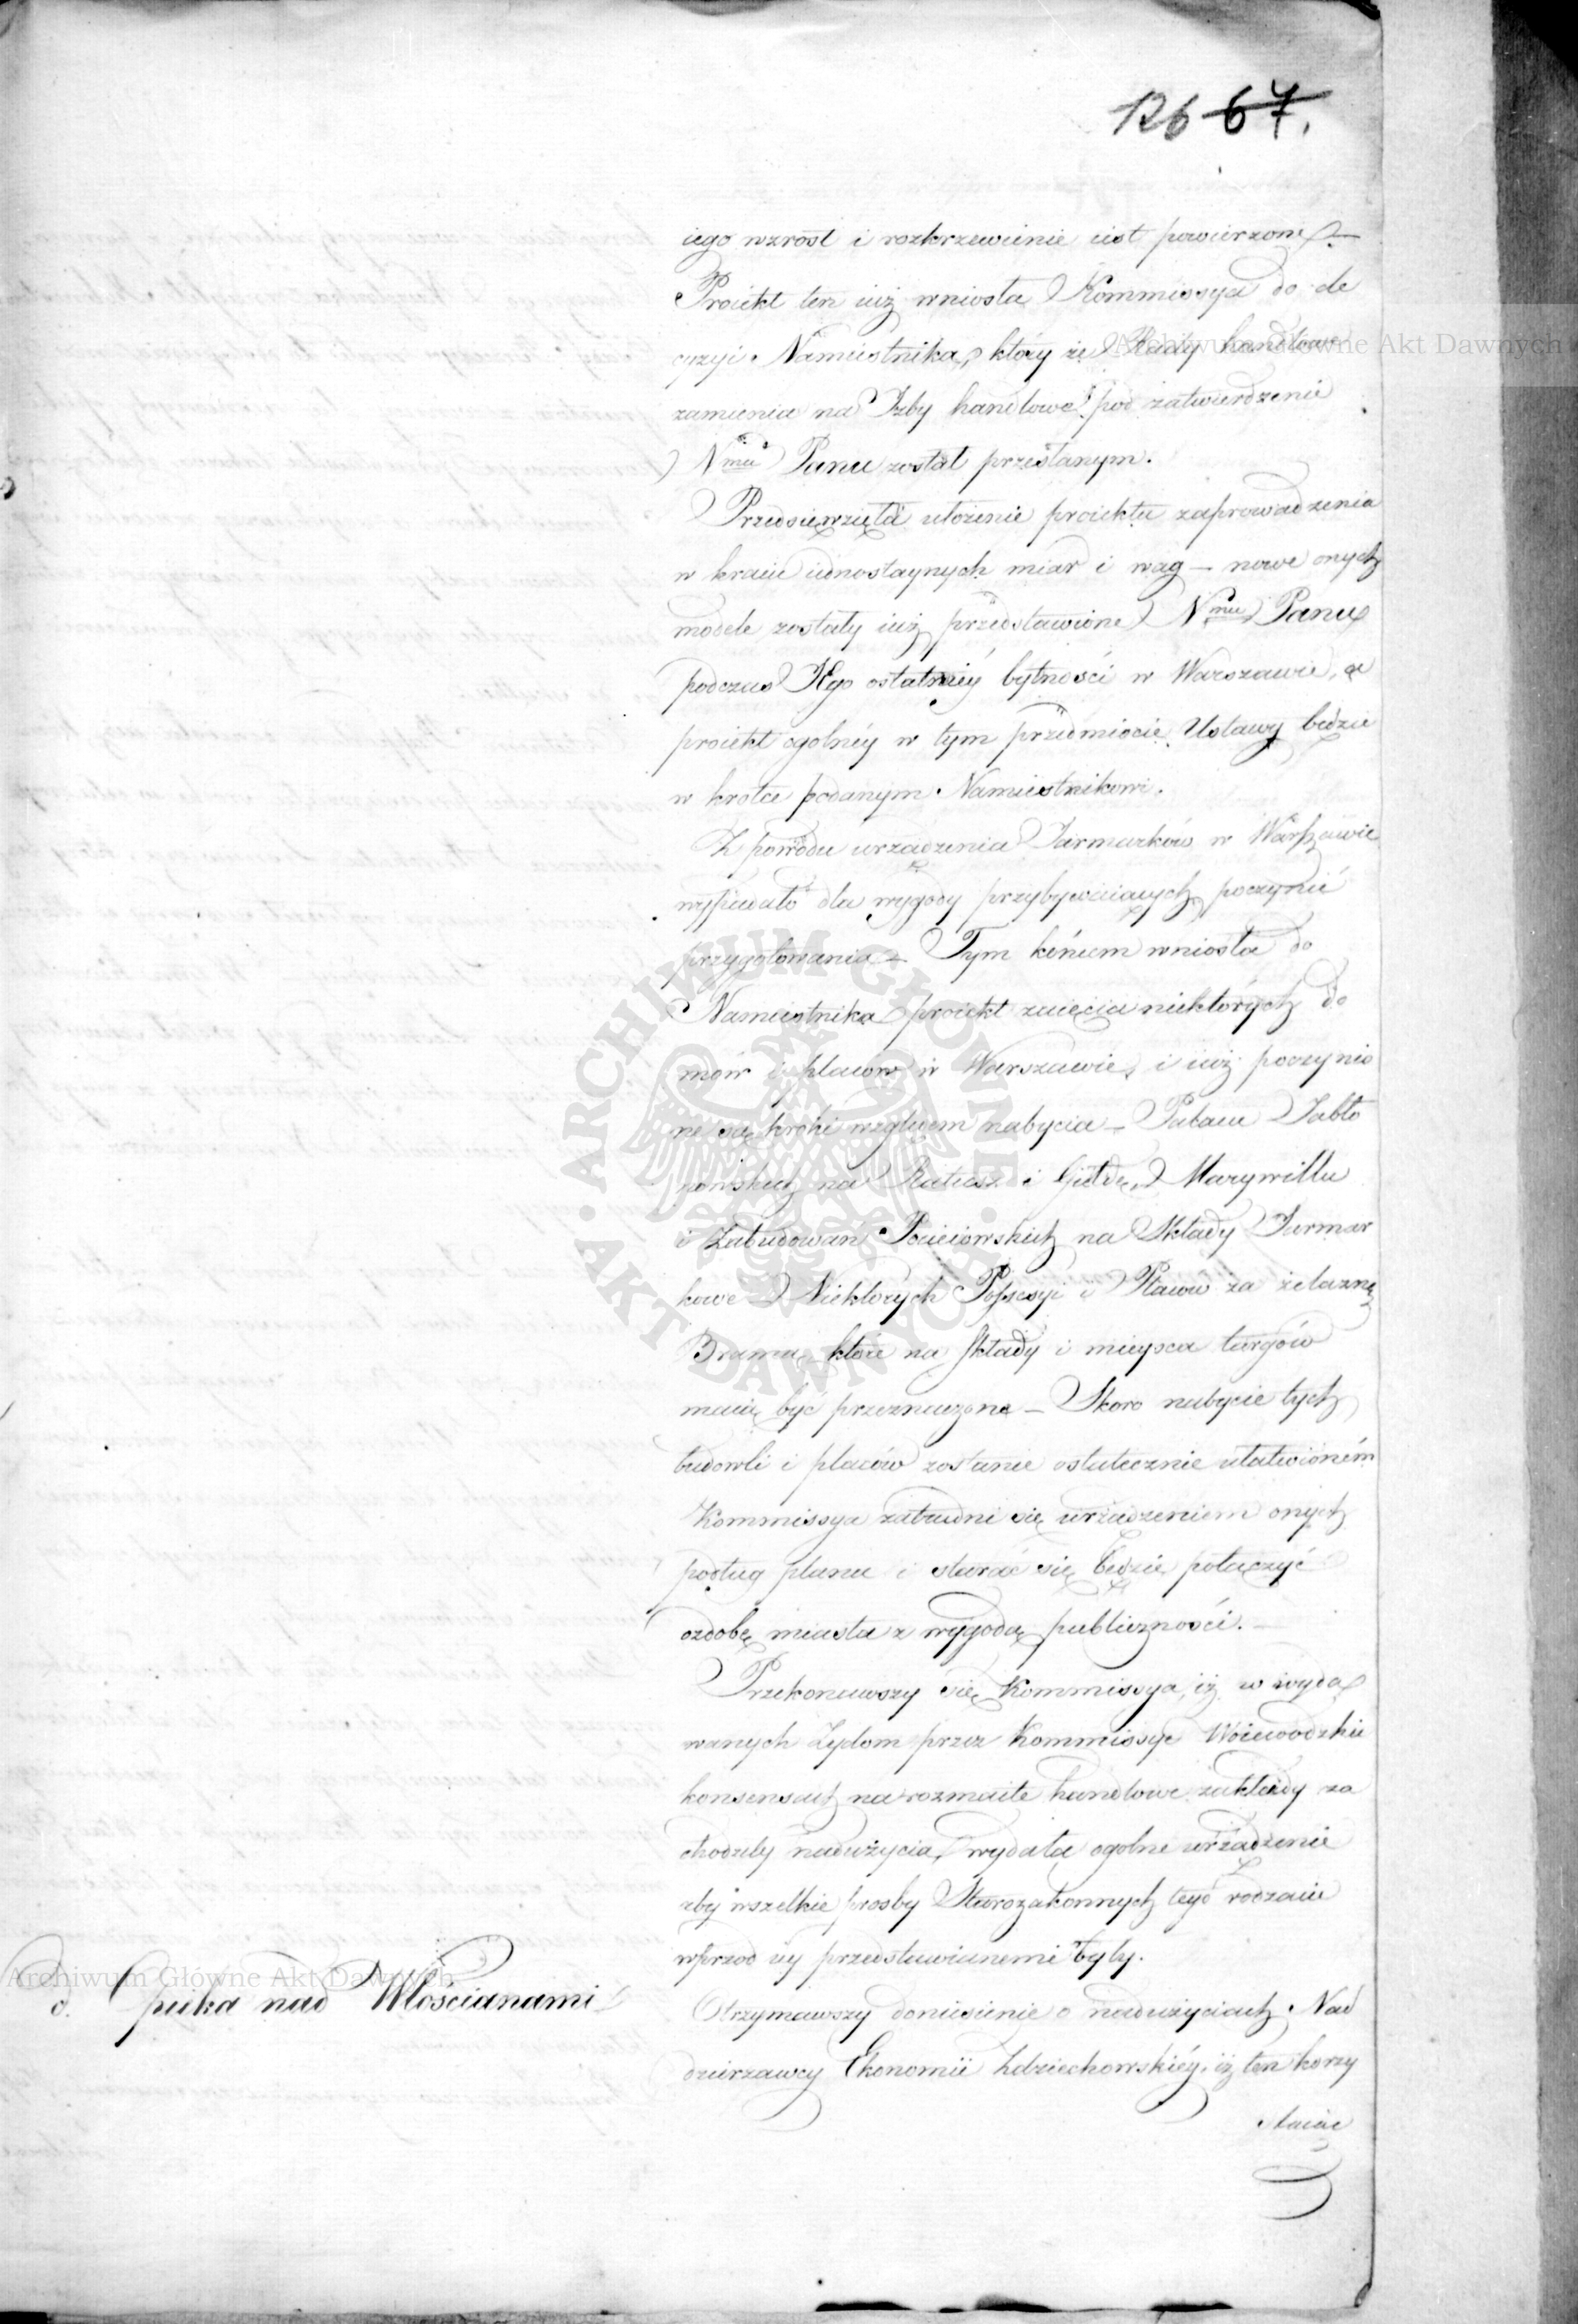 126 67.
iego wzrost i rozkrzewienie iest powierzone.—
Proiekt ten iuż wniosła Kommissya do de
cyzyi Namiestnika, który że Rady handlowe
zamienia na Izby handlowe, pod zatwierdzenie
Nmu Panu został przesłanym.
Przedsięwzięła ułożenie proiektu zaprowadzenia
w kraiu iednostaynych miar i wag — nowe onych
modele zostały iuż przedstawione Nmu Panu
podczas JEgo ostatniéy bytności w Warszawie, a
proiekt ogolnéy w tym przedmiocie Ustawy będzie
w krotce podanym Namiestnikowi.
Z powodu urządzenia Jarmarków w Warszawie
wypadało dla wygody przybywaiących poczynić
przygotowania — Tym końcem wniosła do
Namiestnika proiekt zaięcia niektórych do
mów i placów w Warszawie, i iuż poczynio
ne są kroki względem nabycia — Pałacu Jabło
nowskich na Ratusz i Giełdę, Marywillu
i Zabudowań Pociejowskich na Składy Jarmar
kowe — Niektórych Possessyi i Placów za żelazną
Bramą, które na składy i mieysca targów
maią być przeznaczone — Skoro nabycie tych
budowli i placów zostanie ostatecznie ułatwioném
Kommissya zatrudni się urządzeniem onych
podług planu i starać się będzie połączyć
ozdobę miasta z wygodą publiczności.—
Przekonawszy się Kommissya, iż w wyda
wanych Żydom przez Kommissye Woiewodzkie
konsensach na rozmaite handlowe zakłady za
chodziły nadużycia, wydała ogolne urządzenie
aby wszelkie prosby Starozakonnych tego rodzaiu
wprzod iey przedstawianemi były.
d. Opieka nad Włościanami
Otrzymawszy doniesienie o nadużyciach Nad
dzierzawcy Ekonomii Zdziechowskiéy, iż ten korzy
staiąc
Archiwum Główne Akt Dawnych
Archiwum Główne Akt Dawnych
ARCHIWUM GŁÓWNE · AKT DAWNYCH ·